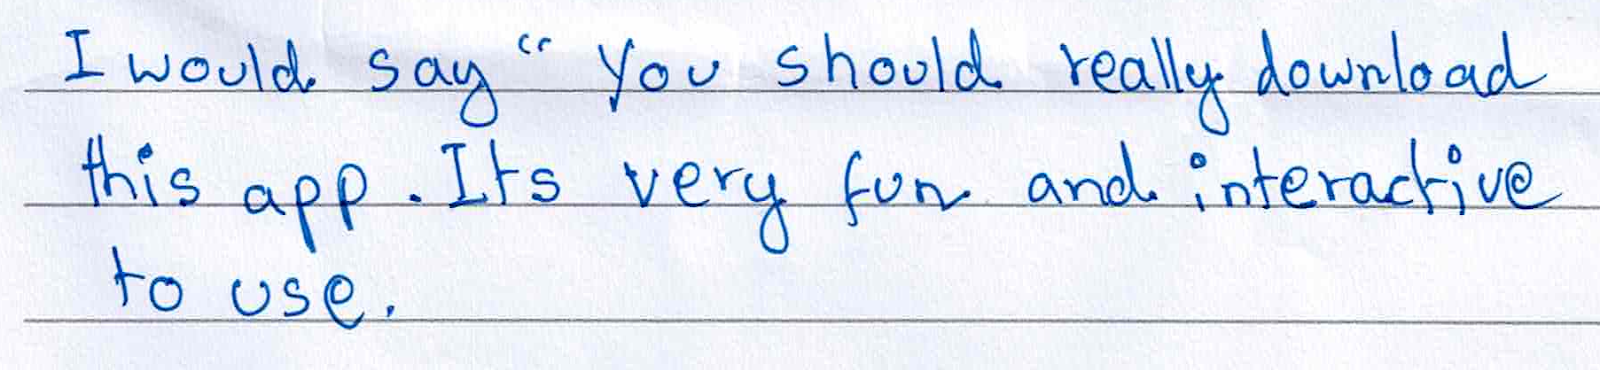 I would say “ You should really download
this app. Its very fun and interactive
to use.